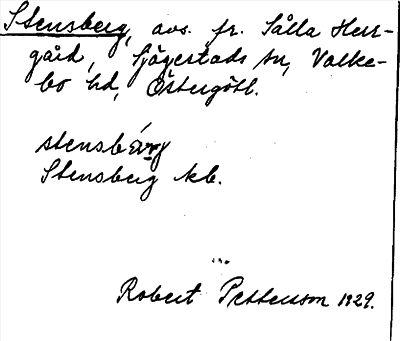 Stensberg, avs. fr. Sålla Herr-
gård, Sjögestads sn, Valke-
bo hd, Östergötl.
stensbärg
Stensberg kb.
Robert Pettersson 1929.